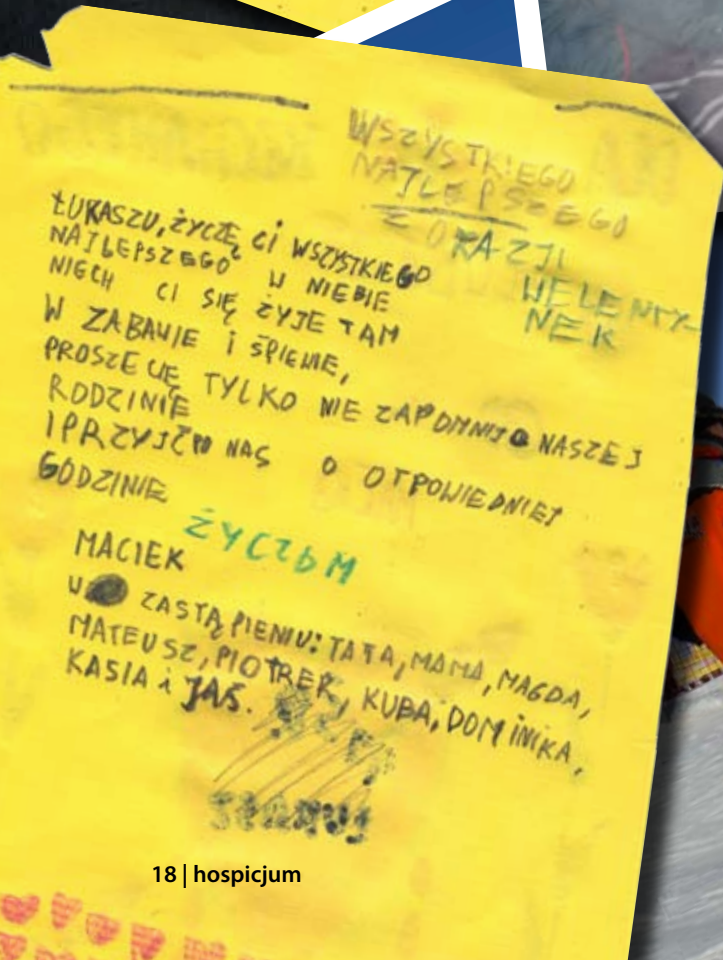 WSZYSTKIEGO
NAJLEPSZEGO
Z OKAZJI
WELENTY-
NEK
ŁUKASZU, ŻYCZĘ CI WSZYSTKIEGO
NAJLEPSZEGO W NIEBIE
NIECH CI SIĘ ŻYJE TAM
W ZABAWIE I ŚPIEWIE,
PROSZE CIĘ TYLKO NIE ZAPOMNIJ O NASZEJ
RODZINIE
I PRZYJĆ PO NAS O OTPOWIEDNIEJ
GODZINIE
ŻYCZBM
MACIEK
W ZASTĄPIENIU: TATA, MAMA, MAGDA,
MATEUSZ, PIOTREK, KUBA, DOMINIKA,
KASIA i JAŚ.
18 | hospicjum